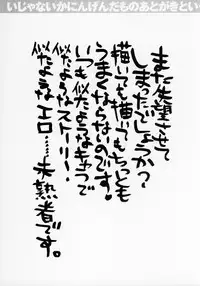 いじゃないかにんげんだものあとがきとい
また失望させて
しまったでしょうか?
描いても描いてもちっとも
うまくならないのです。
いつも似たようなキャラで
似たようなストーリー!
似たようなエロ……未熟者です。